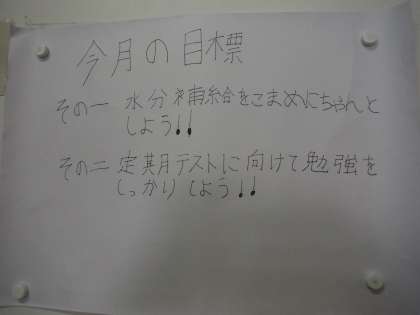 今月の目標
その一 水分補給をこまめにちゃんと
しよう!!
その二 定期テストに向けて勉強を
しっかりしよう!!